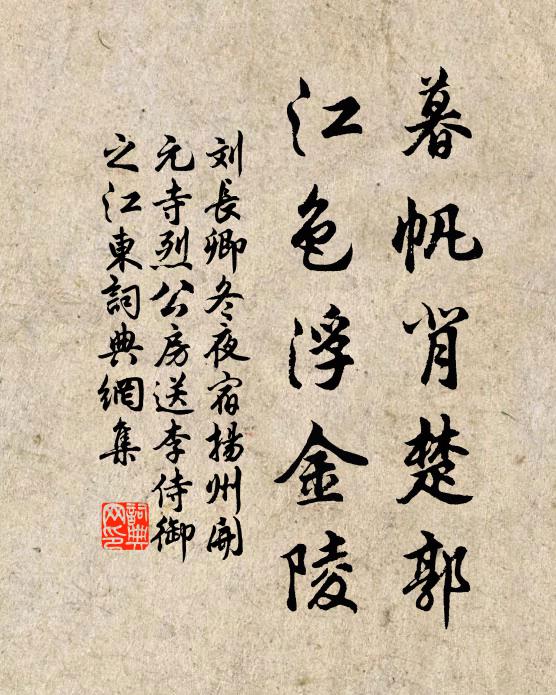 暮帆背楚郭
江色浮金陵
刘長卿冬夜宿揚州開
元寺烈公房送李侍御
之江東詞典網集
詞典
网印